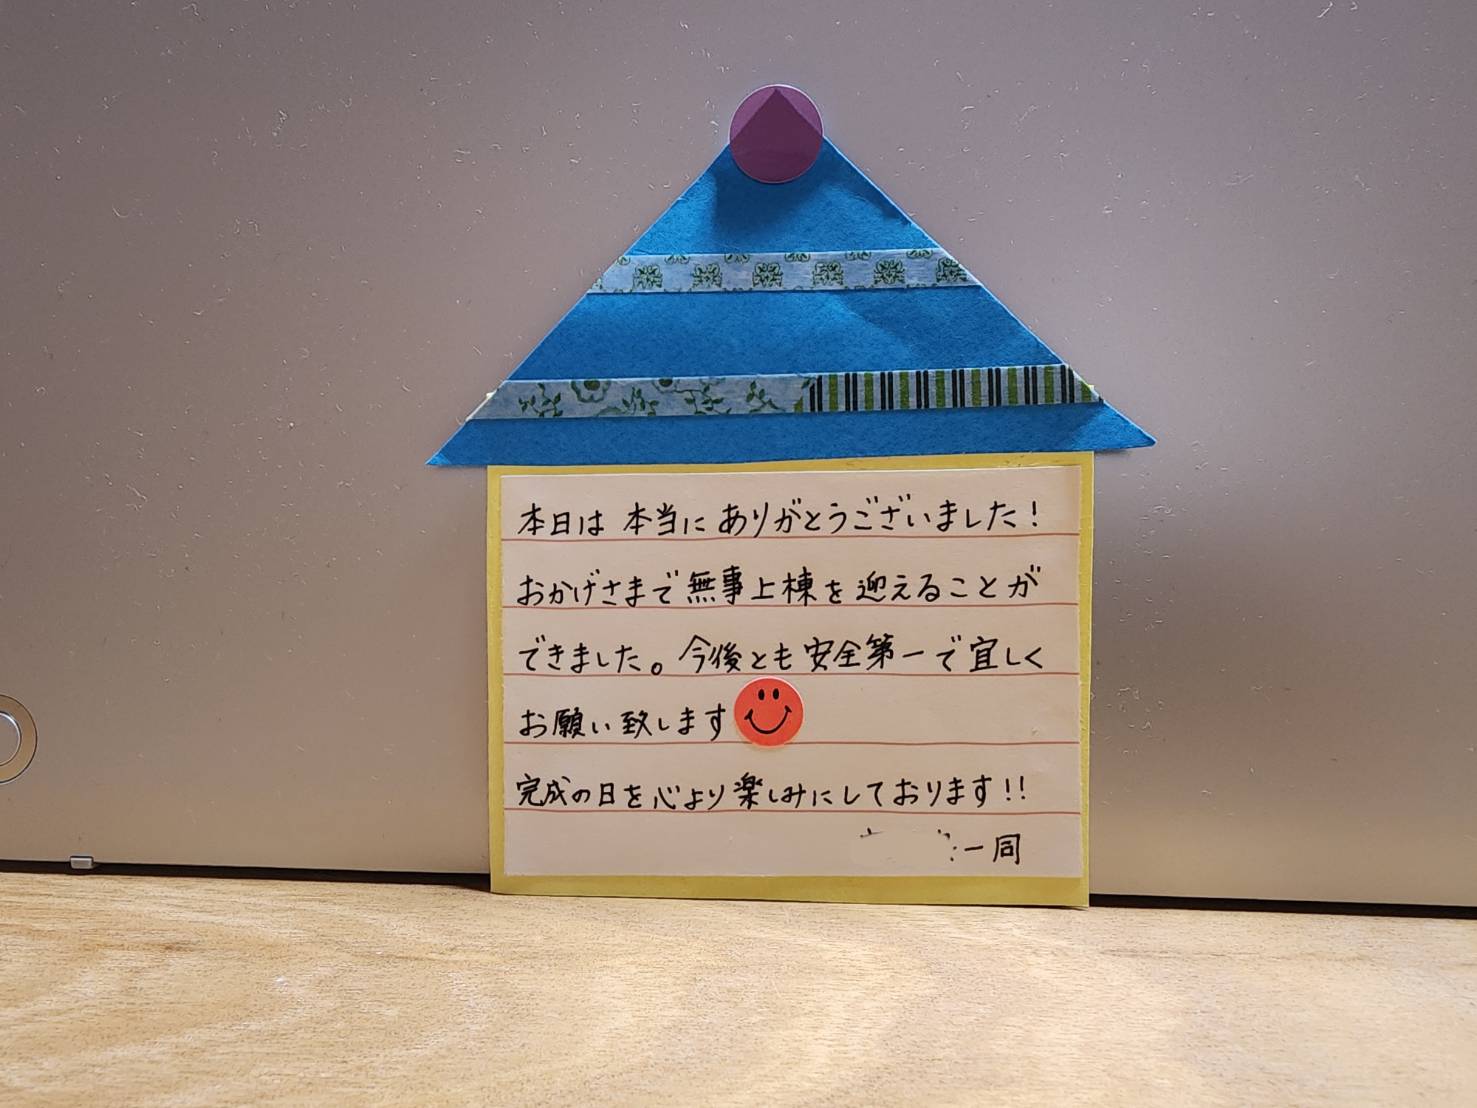 本日は 本当に ありがとうございました！
おかげさまで 無事上棟を迎えることが
できました。今後とも 安全第一で宜しく
お願い致します
完成の日を心より楽しみにしております!!
一同